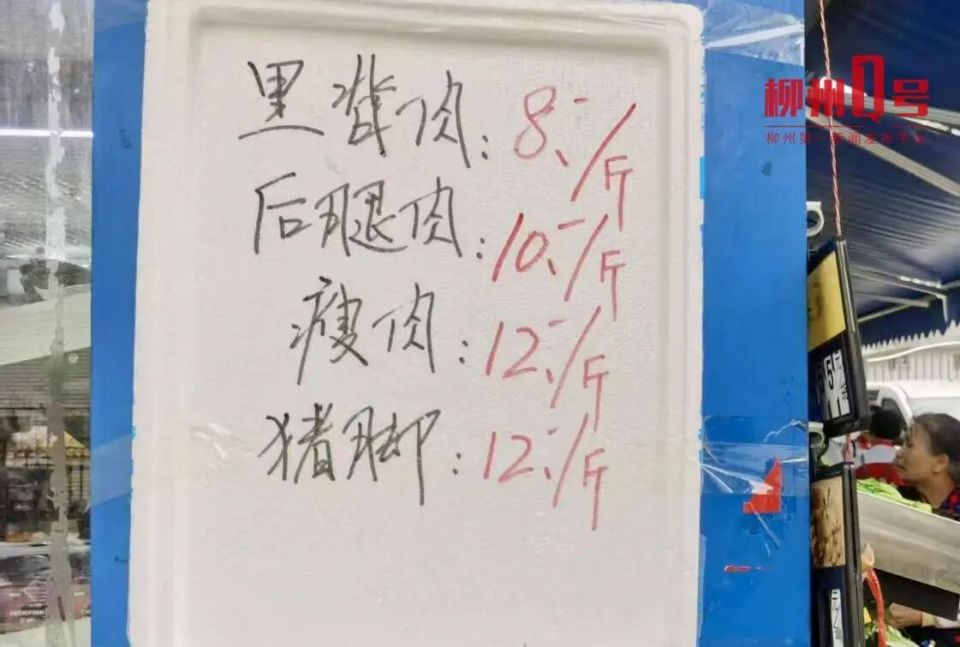 里脊肉：8.-/斤
后腿肉：10.-/斤
瘦肉：12.-/斤
猪脚：12.-/斤
柳州Q号
柳州第一新闻发布平台
5元